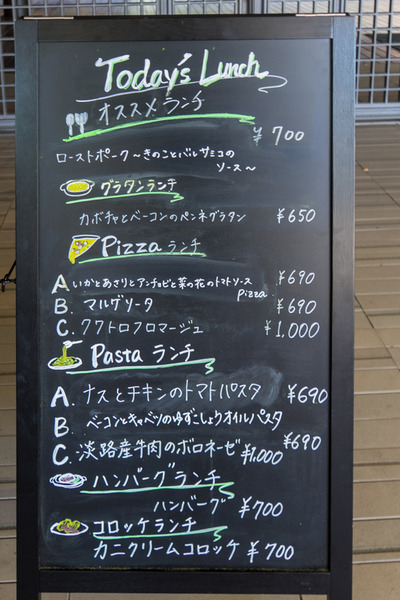 Today's Lunch
オススメランチ
¥700
ローストポーク～きのことバルサミコの
ソース～
グラタンランチ
カボチャとベーコンのペンネグラタン ¥650
Pizza ランチ
A. いかとあさりとアンチョビと菜の花のトマトソース ¥690
Pizza
B. マルゲリータ ¥690
C. クワトロフロマージュ ¥1,000
Pasta ランチ
A. ナスとチキンのトマトパスタ ¥690
B. ベーコンとキャベツのゆずこしょうオイルパスタ
¥690
C. 淡路産牛肉のボロネーゼ ¥1,000
ハンバーグランチ
ハンバーグ ¥700
コロッケランチ
カニクリームコロッケ ¥700